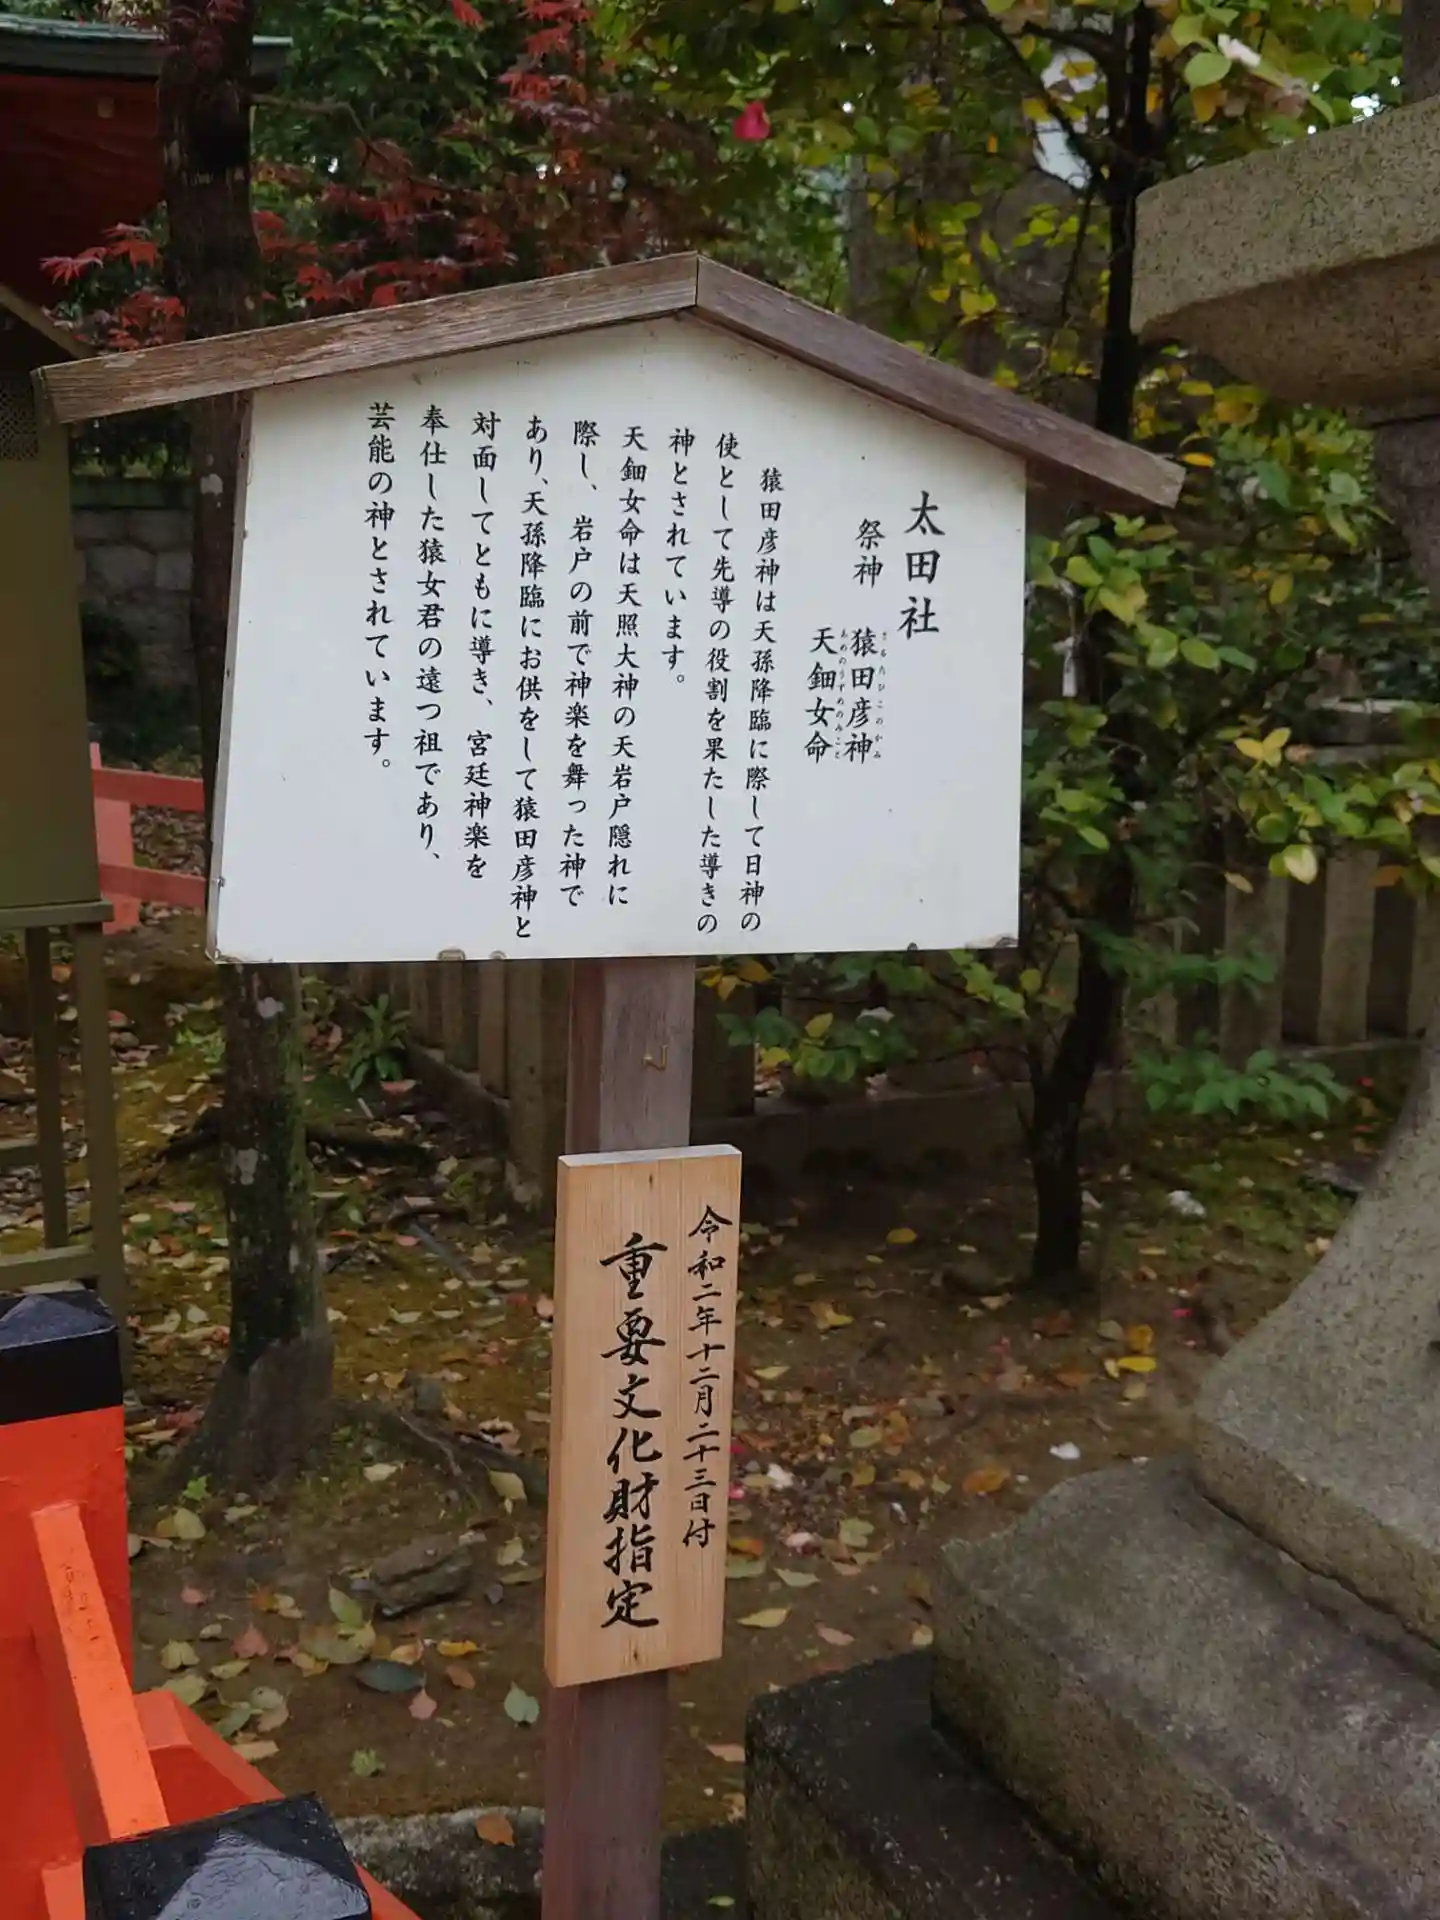 太田社
祭神
猿田彦神
さるたひこのかみ
天鈿女命
あめのうずめのみこと
猿田彦神は天孫降臨に際して日神の
使として先導の役割を果たした導きの
神とされています。
天鈿女命は天照大神の天岩戸隠れに
際し、岩戸の前で神楽を舞った神で
あり、天孫降臨にお供をして猿田彦神と
対面してともに導き、宮廷神楽を
奉仕した猿女君の遠つ祖であり、
芸能の神とされています。
令和二年十二月二十三日付
重要文化財指定